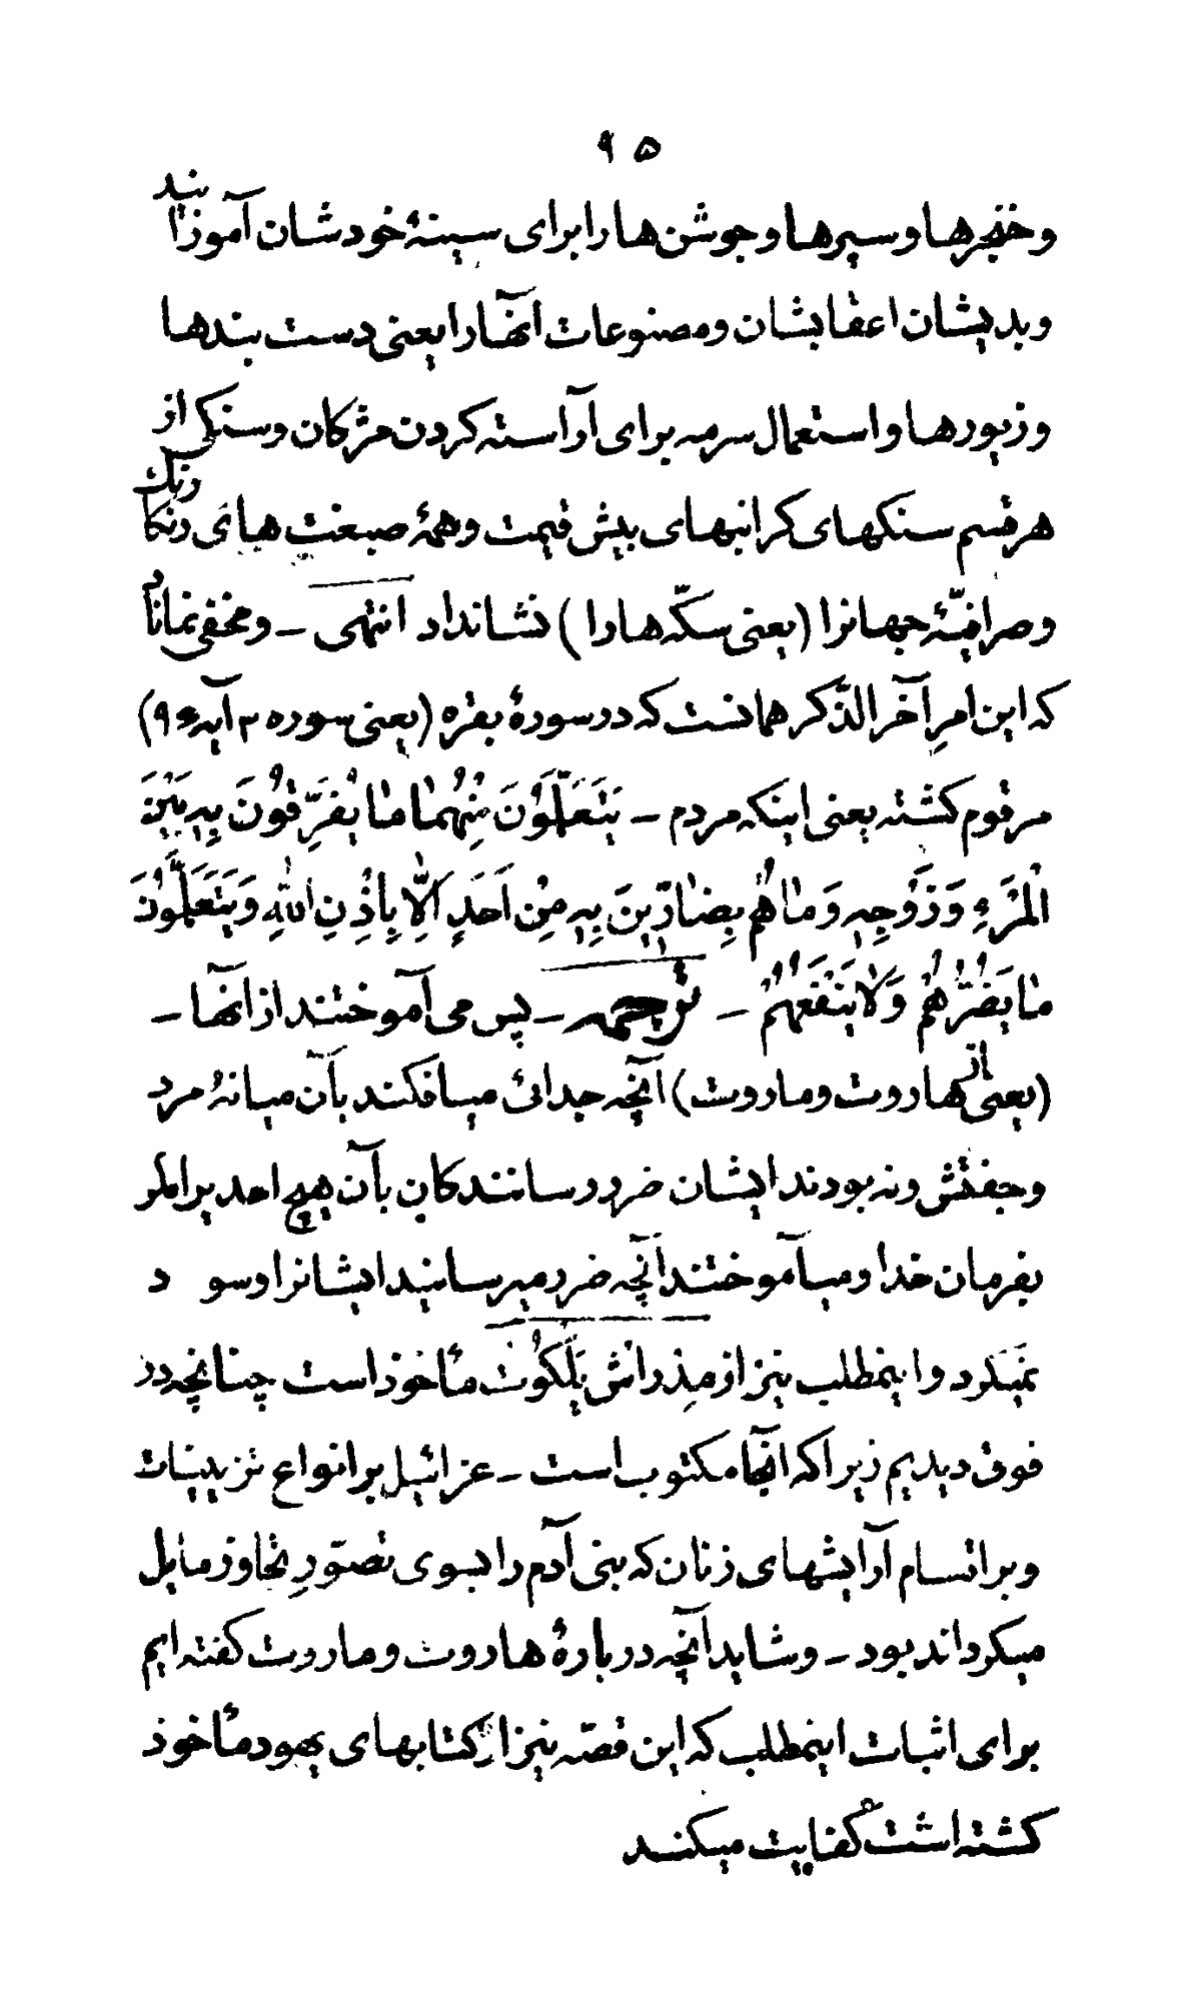 ۹۵
و خنجرها و سپرها و جوشن ها را برای سینهٔ خودشان آموزانید
و بدیشان اعقابشان و مصنوعات آنها را یعنی دست بندها
و زیورها و استعمال سرمه برای آراسته کردن مژکان و سنکی از
هر قسم سنکهای کرانبهای بیش قیمت و همهٔ صبغت های رنکارنک
و صرافیّهٔ جهانرا (یعنی سکّه هارا) نشانداد انتهی – و مخفی نماناد
که این امرِ آخر الذّکر همانست که در سورهٔ بقره (یعنی سوره ۲ آیه ۹۶)
مرقوم کشته یعنی اینکه مردم – یَتَعَلَّمُوْنَ مِنْهُمٰا مٰا یُفَرِّقُونَ بِهِ بَیْنَ
الْمَرْءِ وَ زَوْجِهِ وَ مٰا هُمْ بِضٰارّینَ بِهِ مِنْ اَحَدٍ اِلّٰا بِاِذْنِ اللهِ وَیَتَعَلَّمُوْنَ
مٰا یَضُرُّهُمْ وَلٰا یَنْفَعُهُمْ – ترجمه – پس می آموختند از آنها –
(یعنی از هاروت و ماروت) آنچه جدائی میافکنند بآن میانهٔ مرد
و جفتش و نه بودند ایشان ضرر رسانندکان بآن هیچ احد برا مکر
بفرمان خدا و میآموختند آنچه ضرر میرسانید ایشانرا و سو د
نمیکرد و اینمطلب نیز از مِذراش یَلکُوت مأخوذ است چنانچه در
فوق دیدیم زیرا که آنجا مکتوب است – عزائیل بر انواع تزیینات
و بر اقسام آرایشهای زنان که بنی آدم را بسوی تصوّرِ تجاوز مایل
میکرداند بود – و شاید آنچه دربارهٔ هاروت و ماروت کفته ایم
برای اثبات اینمطلب که این قصّه نیز از کتابهای یهود مأخوذ
کشته است کفایت میکنند